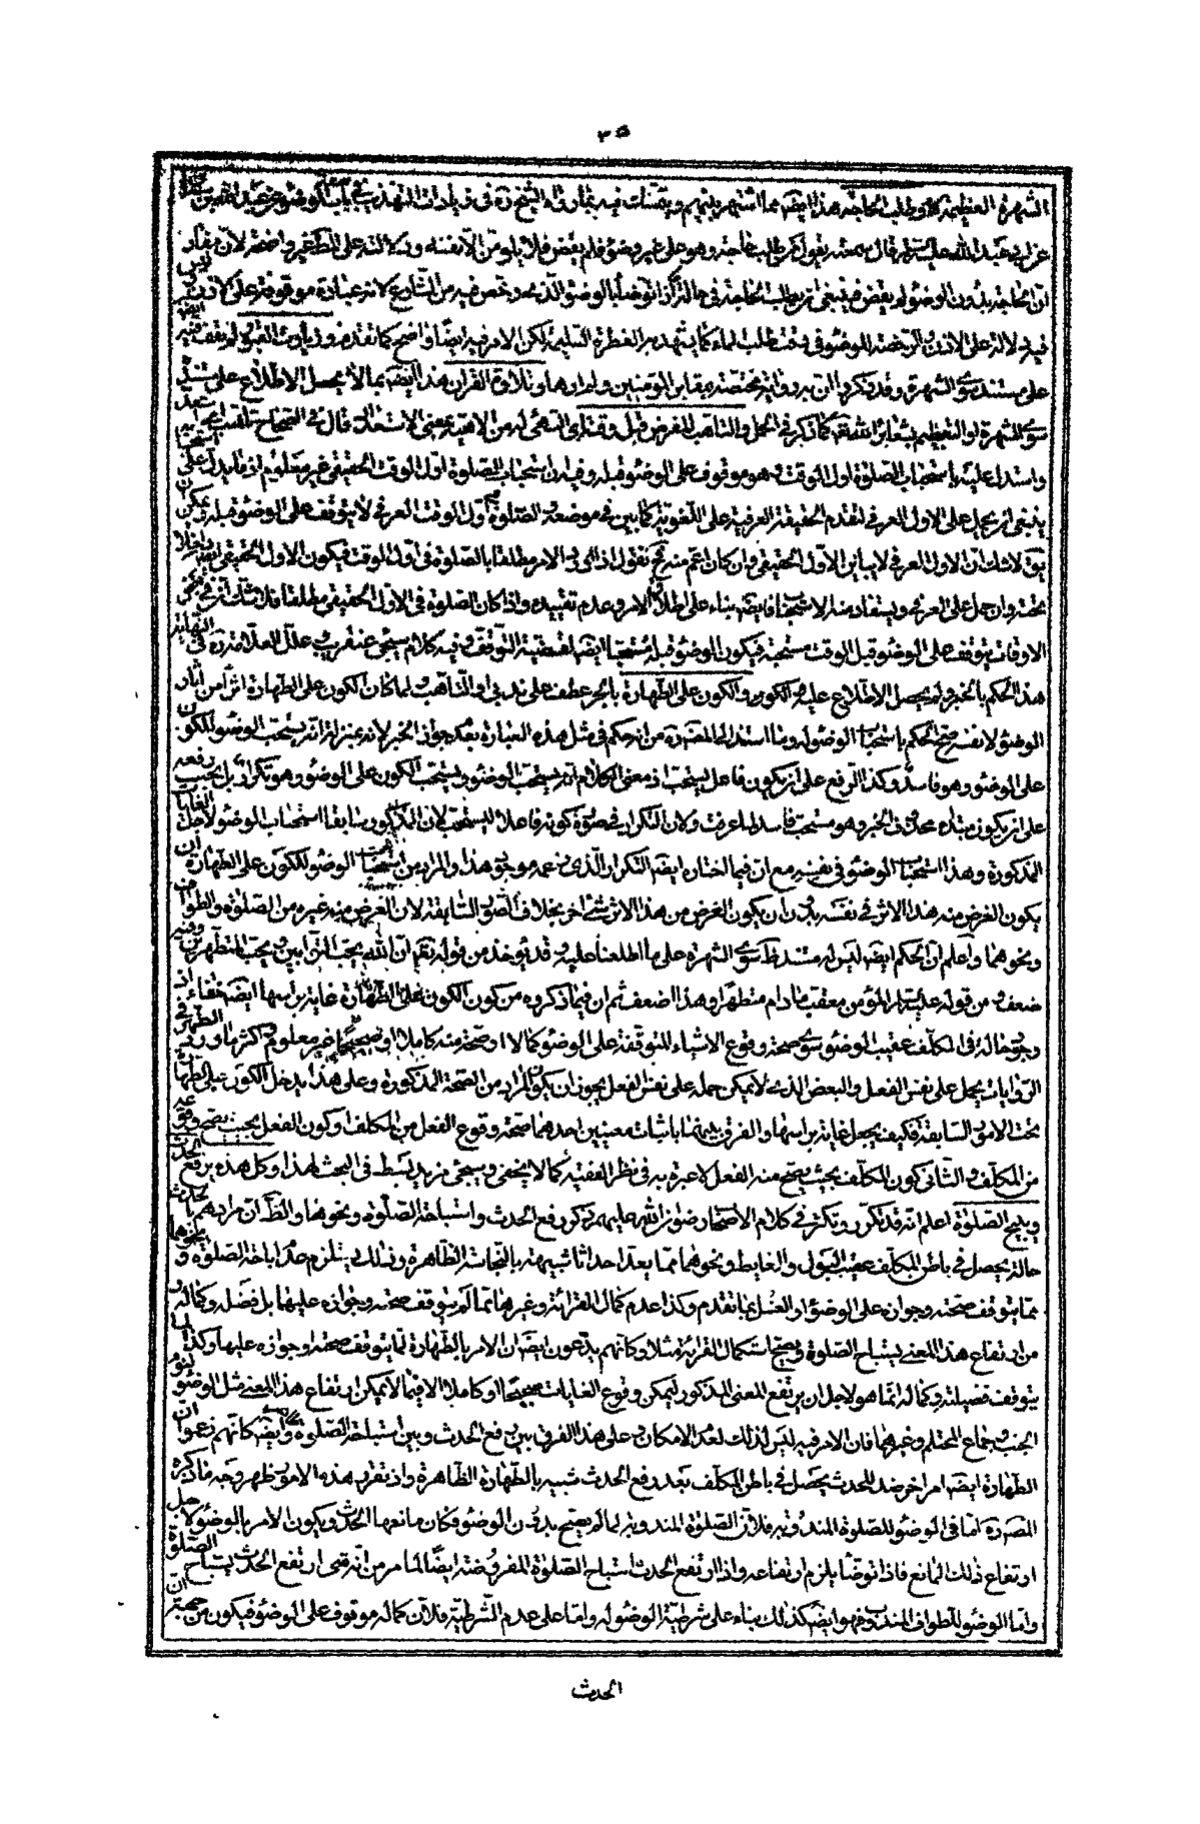 ٣٥
الشهرة العظيمة وطلب الحاجة هذا ايضا مما اشتهر بينهم ويتمسك فيه بما رواه الشيخ ره في زيادات التهذيب في باب الوضوء عن عبد الله بن
عن ابي عبد الله عليه السلم قال سمعته يقول من طلب حاجة وهو على غير وضوء فلم يقض فلا يلومن الا نفسه ودلالته على المط غير واضحة لان مفاد
ان الحاجة بدون الوضوء لم يقض فينبغي ان يطلب الحاجة في حالة
فيه دلالة على الاذن بل الرخصة للوضوء في وقت طلب الماء كما يشهد به الفطرة السليمة لكن الامر فيه ايضا واضح كما تقدم وزيارة المقابر لم نقف فيه
على مستند سوى الشهرة وقد ذكروا ان به رواية مختصة بمقابر المؤمنين ولم ارها وتلاوة القران هذا ايضا مما لم يحصل الاطلاع على مستند
سوى الشهرة او التعظيم بشعائر الله تعالى كما ذكر في الحمل والتاهب للفرض قبل وقته اي التهيؤ له من الاهبة بمعنى الاستعداد قال في الصحاح تاهب استعد
واستدل عليه باستحباب الصلوة اول الوقت وهو موقوف على الوضوء قبله وفيه ان استحباب الصلوة اول الوقت الحقيقي غير معلوم اذ ما يدل على
ينبغي ان يحمل على الاول العرفي لتقدم الحقيقة العرفية على اللغوية كما بين في موضعه والصلوة في اول الوقت العرفي لا يتوقف على الوضوء قبله ويمكن ان
يق لا شك ان الاول العرفي لا يباين الاول الحقيقي وان كان اعم منه فح نقول اذا ورد الامر مطلقا بالصلوة في اول الوقت فيكون الاول الحقيقي ايضا داخلا
تحته وان حمل على العرفي ويستفاد منه الاستحباب فيه ايضا بناء على اطلاق الامر وعدم تقييده واذا كان الصلوة في الاول الحقيقي مطلقا فلا شك انه في بعض
الاوقات يتوقف على الوضوء قبل الوقت مستحبة فيكون الوضوء قبله مستحبا ايضا لقضية التوقف وفيه كلام سيجئ عنقريب وعلل العلامة ره في النهاية
هذا الحكم بالخبر ولم يحصل الاطلاع عليه والكون على الطهارة بالجر عطف على ندبي او التاهب ولما كان الكون على الطهارة اثرا من اثار
الوضوء لا نفسه صح الحكم باستحباب الوضوء له وما اسند الى المصنف ره من انه حكم في مثل هذه العبارة بعدم جواز الجر لانه بمنزلة انه يستحب الوضوء للكون
على الوضوء وهو فاسد وكذا الرفع على ان يكون فاعل يستحب اذ معنى الكلام انه يستحب الوضوء ويستحب الكون على الوضوء وهو تكرار بل يجب رفعه
على ان يكون مبتدء محذوف الخبر وهو مستحب فاسد لما عرفت ولان التكرار في صورة كونه فاعلا ليستحب لان المذكور سابقا استحباب الوضوء لاجل الغايات
المذكورة وهذا استحباب الوضوء في نفسه مع ان فيما اختاره ايضا التكرار الذي زعمه موجود هذا والمراد من استحباب الوضوء للكون على الطهارة ان
يكون الغرض منه هذا الاثر في نفسه بدون ان يكون الغرض من هذا الاثر شئ اخر بخلاف الصور السابقة لان الغرض منه غيره من الصلوة والطواف
ونحوهما واعلم ان الحكم ايضا ليس له مستند ظ سوى الشهرة على ما اطلعنا عليه وقد يؤخذ من قوله تعم ان الله يحب التوابين ويحب المتطهرين وفيه
ضعف ومن قوله عليه السلم المؤمن معقب ما دام متطهرا وهذا اضعف ثم ان فيما ذكروه من كون الكون على الطهارة غاية براسها ايضا خفاء اذ
وجود حالة في المكلف عقيب الوضوء سوى صحة وقوع الاشياء المتوقفة على الوضوء كمالا او صحة منه كاملا او صحيحا غير معلوم واكثر ما ورد في
الروايات يحمل على نفس الفعل والبعض الذي لا يمكن حمله على نفس الفعل يجوز ان يكون المراد من الصحة المذكورة وعلى هذا يدخل الكون على الطهارة
تحت الامور السابقة فكيف يجعل غاية براسها والفرق بينهما باثبات معنيين احدهما صحة وقوع الفعل من المكلف او كون الفعل بحيث يصح وقوعه
من المكلف والثاني كون المكلف بحيث يصح منه الفعل لا عبرة به في نظر الفقيه كما لا يخفى وسيجئ مزيد بسط في البحث لهذا وكل هذه يرفع الحدث
ويبيح الصلوة اعلم انه قد تكرر وتكثر في كلام الاصحاب رضوان الله عليهم ذكر رفع الحدث واستباحة الصلوة ونحوها والظ ان مرادهم بالحدث
حالة يحصل في باطن المكلف عقيب البول والغايط ونحوهما مما يعد احداثا شبيهة بالنجاسة الظاهرة وذلك يستلزم عدم اباحة الصلوة ونحوها
مما يتوقف صحته وجوازه على الوضوء او الغسل بما تقدم وكذا عدم كمال القرائة وغيرها مما لم يتوقف صحته وجوازه عليهما بل فضله وكماله
من ارتفاع هذا المعنى يستباح الصلوة ويصح استكمال القرائة مثلا وكانهم يدعون ايضا ان الامر بالطهارة لما يتوقف صحته وجوازه عليها وكذا لما
يتوقف فضيلته وكماله انما هو لاجل ان يرتفع المعنى المذكور ليمكن وقوع الغايات صحيحا او كاملا الا فيما لا يمكن ارتفاع هذا المعنى مثل الوضوء لنوم
الجنب وجماع المحتلم وغيرهما فان الامر فيه ليس لذلك لعدم الامكان وعلى هذا الفرق بين رفع الحدث وبين استباحة الصلوة وايضا كانهم زعموا ان
الطهارة ايضا امر اخر ضد للحدث يحصل في باطن المكلف بعد رفع الحدث شبيه بالطهارة الظاهرة واذ تقرر هذه الامور ظهر وجه ما ذكره
المصنف ره اما في الوضوء للصلوة المندوبة فلان الصلوة المندوبة لما لم يصح بدون الوضوء فكان مانعها الحدث ويكون الامر بالوضوء لاجل
ارتفاع ذلك المانع فاذا توضأ يلزم ارتفاعه واذا ارتفع الحدث استباح الصلوة المفروضة ايضا لما مر من انه متى ارتفع الحدث يستباح الصلوة
واما الوضوء للطواف المندوب فهو ايضا كذلك بناء على شرطية الوضوء له واما على عدم الشرطية فلان كماله موقوف على الوضوء فيكون من جهة ان
الحدث